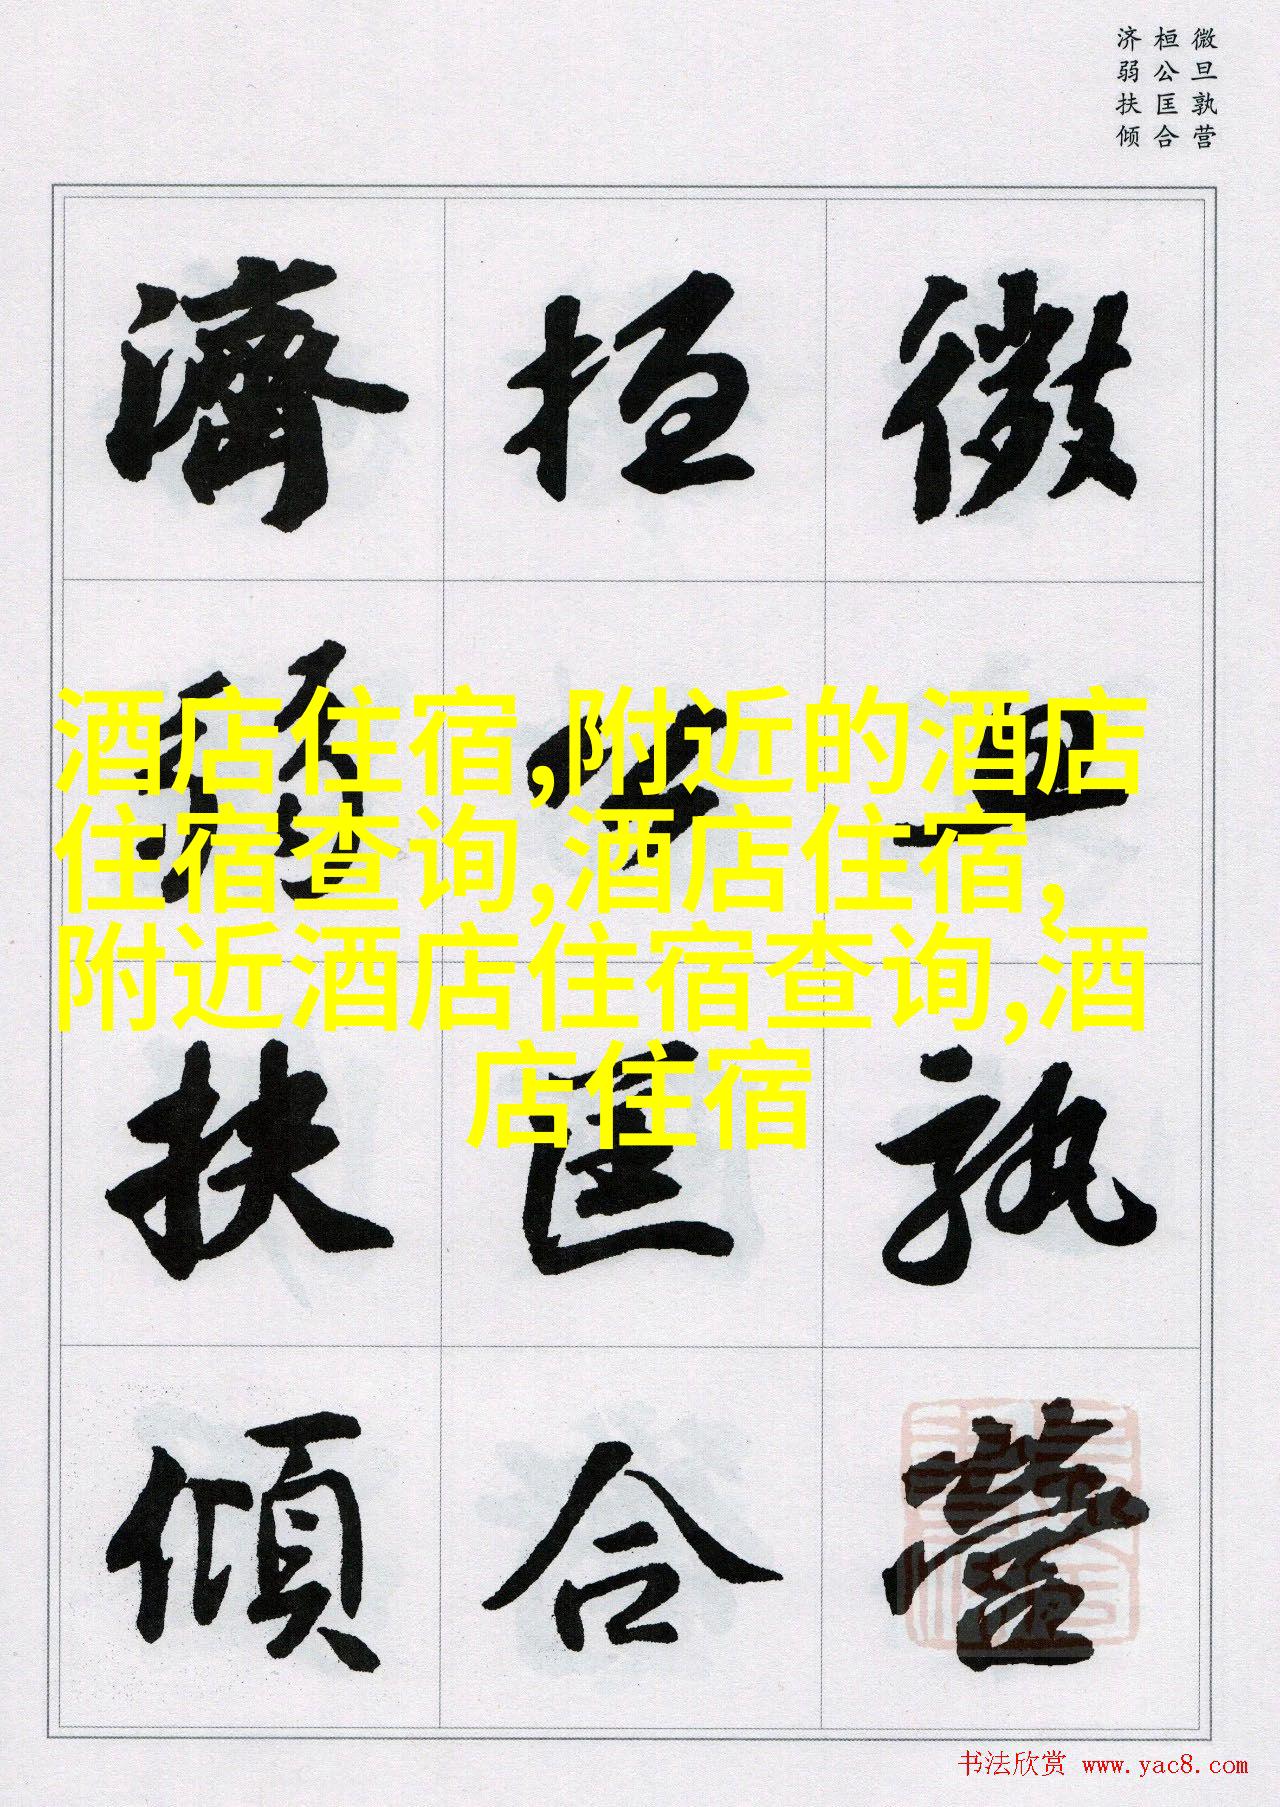 微旦孰营
桓公匡合
济弱扶倾
微旦孰營
桓公匡合
濟弱扶傾
酒店住宿,附近的酒店
住宿查询,酒店住宿,
附近酒店住宿查询,酒
店住宿
书法欣赏 www.yac8.com